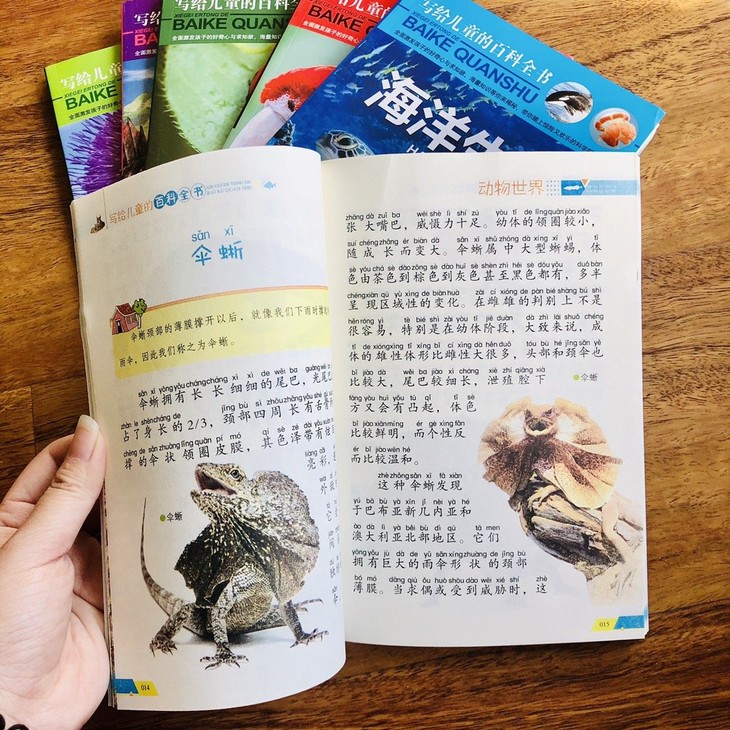 写给儿童的
BAIKE
BAIKE
写给儿童的百科全
XIEGEI ERTONG DE
BAIKE QUANSHU
全面激发孩子的好奇心与求知欲，海量知
BAIKE
全面激发孩子的好奇心
写给儿童的百科全书
XIEGEI ERTONG DE
BAIKE QUANSHU
全面激发孩子的好奇心与求知欲，海量知识等你来揭秘
海洋生
写给儿童的百科全书
sǎn xī
伞蜥
伞蜥颈部的薄膜撑开以后，就像我们下雨时撑
雨伞，因此我们称之为伞蜥。
sǎn xī yōng yǒu cháng cháng xì xì de wěi ba
伞蜥拥有长长细细的尾巴，光尾
zhàn le shēn cháng de jǐng bù sì zhōu zhǎng yǒu
占了身长的2/3，颈部四周长有舌骨
chēng de sǎn zhuàng lǐng quān pí mó qí sè zé dài yǒu
撑的伞状领圈皮膜，其色泽带有
亮彩，
伞蜥
014
动物世界
zhāng dà zuǐ ba wēi shè lì shí zú yòu tǐ de lǐng quān jiào xiǎo
张大嘴巴，威慑力十足。幼体的领圈较小，
suí chéng zhǎng ér biàn dà sǎn xī shǔ zhōng dà xíng xī yì tǐ
随成长而变大。伞蜥属中大型蜥蜴，体
sè yóu chá sè dào zōng sè dào huī sè shèn zhì hēi sè dōu yǒu duō bàn
色由茶色到棕色到灰色甚至黑色都有，多半
chéng xiàn qū yù xìng de biàn huà zài cí xióng de pàn bié shàng bú shì
呈现区域性的变化。在雌雄的判别上不是
hěn róng yì tè bié shì zài yòu tǐ jiē duàn dà zhì lái shuō chéng
很容易，特别是在幼体阶段，大致来说，成
tǐ de xióng xìng tǐ xíng bǐ cí xìng dà hěn duō tóu bù hé jǐng sǎn yě
体的雄性体形比雌性大很多，头部和颈伞也
bǐ jiào dà wěi ba jiào xì cháng xiè zhí qiāng xià
比较大，尾巴较细长，泄殖腔下
fāng yòu huì yǒu tū qǐ tǐ sè
方又会有凸起，体色
bǐ jiào xiān míng ér gè xìng fǎn
比较鲜明，而个性反
ér bǐ jiào wēn hé
而比较温和。
zhè zhǒng sǎn xī fā xiàn
这种伞蜥发现
yú bā bù yà xīn jǐ nèi yà hé
于巴布亚新几内亚和
ào dà lì yà běi bù dì qū tā men
澳大利亚北部地区。它们
yōng yǒu jù dà de yǔ sǎn xíng zhuàng de jǐng bù
拥有巨大的雨伞形状的颈部
bó mó dāng qiú ǒu huò shòu dào wēi xié shí zhè
薄膜。当求偶或受到威胁时，这
伞蜥
015